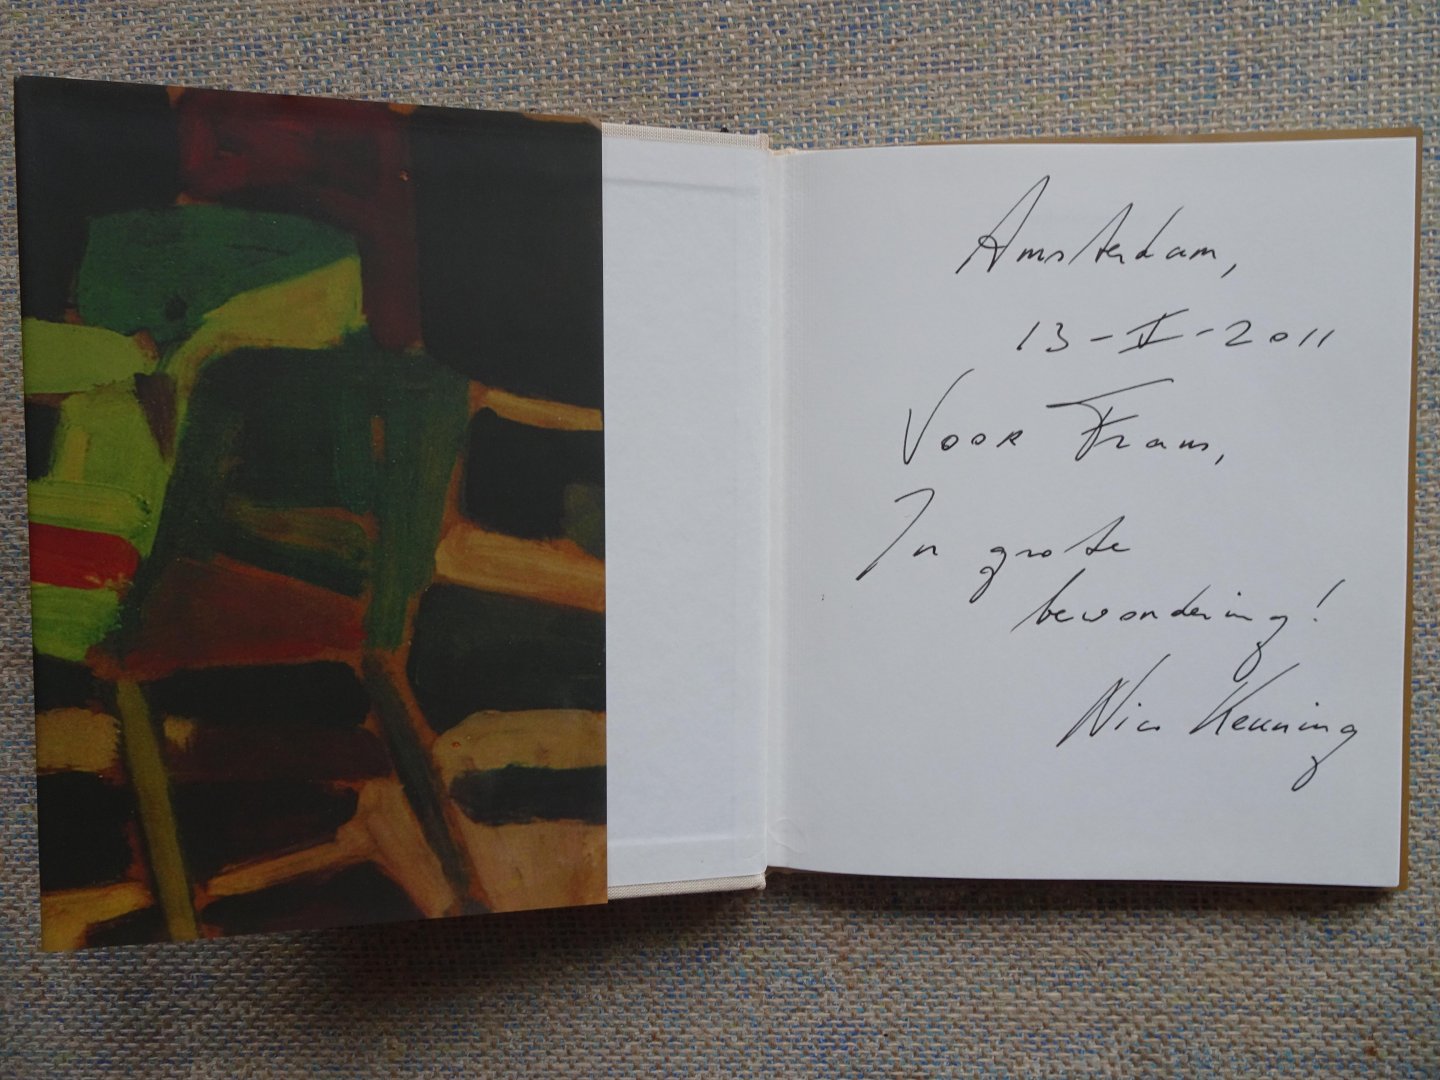 Amsterdam,
13-V-2011
Voor Frans,
In grote
bewondering!
Nico Keuning